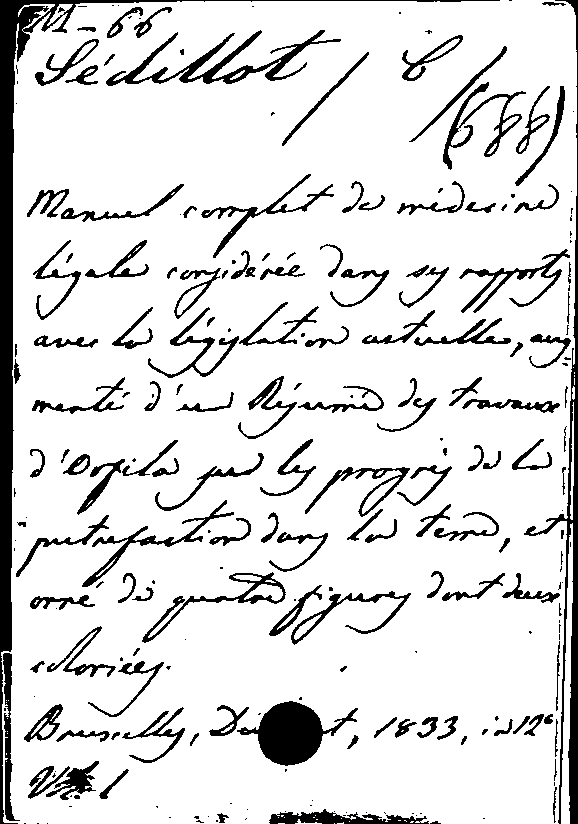 M-66
Sédillot / C /
(688)
Manuel complet de médecine
légale considérée dans ses rapports
avec la législation actuelle, aug
menté d'un Résumé des travaux
d'Orfila sur les progrès de la
putrefaction dans la terre, et
orné de quatre figures dont deux
coloriées.
Bruxelles, 1833, in 12°
1